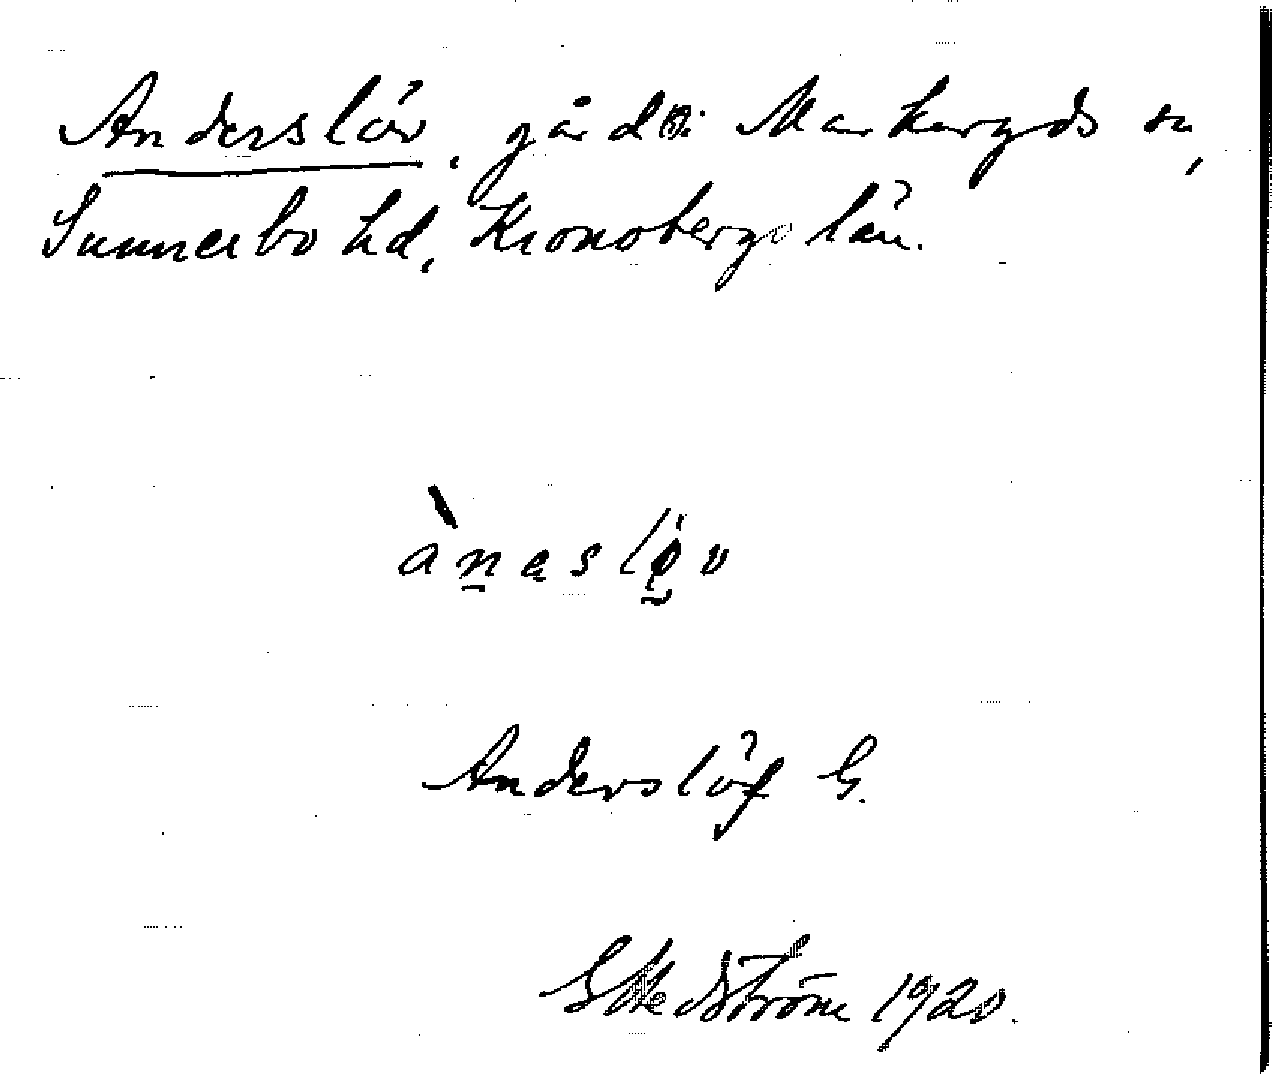 Anderslöv, gård i Markaryds sn,
Sunnerbo hd, Kronobergs län.
ànəslöv
Anderslöf G.
G Hedström 1920.